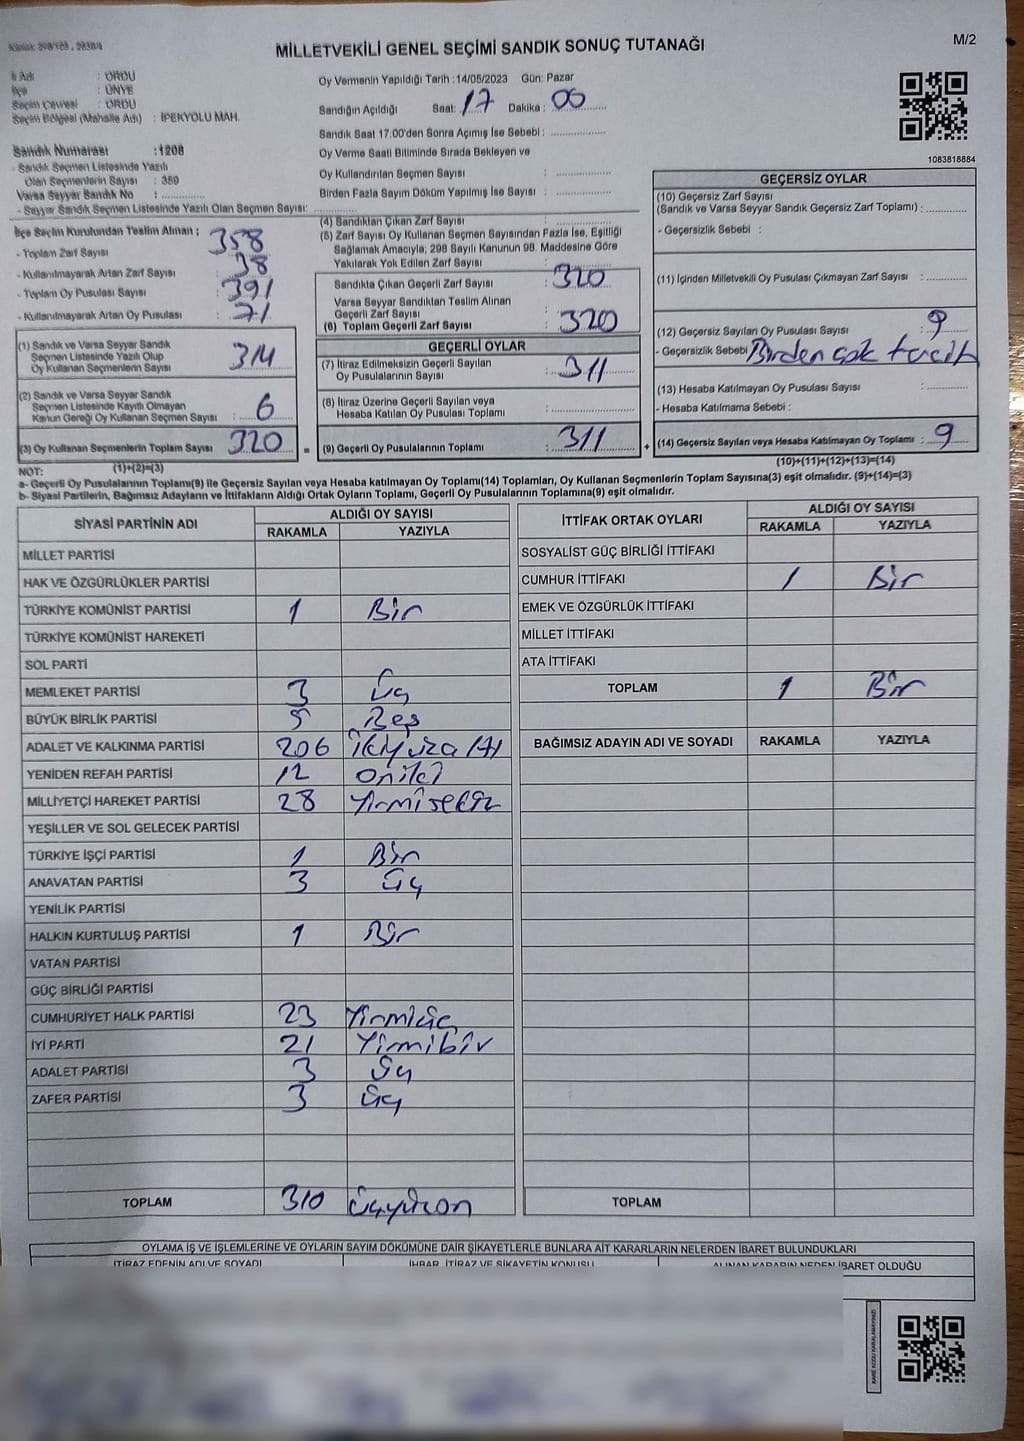 MİLLETVEKİLİ GENEL SEÇİMİ SANDIK SONUÇ TUTANAĞI
M/2
İl Adı : ORDU
İlçe : ÜNYE
Seçim Çevresi : ORDU
Seçim Bölgesi (Mahalle Adı) : İPEKYOLU MAH.
Sandık Numarası :1208
- Sandık Seçmen Listesinde Yazılı
Olan Seçmenlerin Sayısı : 359
Varsa Seyyar Sandık No : ............
- Seyyar Sandık Seçmen Listesinde Yazılı Olan Seçmen Sayısı: ............
Oy Vermenin Yapıldığı Tarih :14/05/2023 Gün: Pazar
Sandığın Açıldığı Saat: 17 Dakika : 00
Sandık Saat 17:00'den Sonra Açımış İse Sebebi : ............
Oy Verme Saati Bitiminde Sırada Bekleyen ve
Oy Kullandırılan Seçmen Sayısı : ............
Birden Fazla Sayım Döküm Yapılmış İse Sayısı : ............
1083818884
İlçe Seçim Kurulundan Teslim Alınan :
- Toplam Zarf Sayısı : 358
- Kullanılmayarak Artan Zarf Sayısı : 38
- Toplam Oy Pusulası Sayısı : 391
- Kullanılmayarak Artan Oy Pusulası : 71
(1) Sandık ve Varsa Seyyar Sandık
Seçmen Listesinde Yazılı Olup
Oy Kullanan Seçmenlerin Sayısı : 314
(2) Sandık ve Varsa Seyyar Sandık
Seçmen Listesinde Kayıtlı Olmayan
Kanun Gereği Oy Kullanan Seçmen Sayısı : 6
(3) Oy Kullanan Seçmenlerin Toplam Sayısı : 320
(4) Sandıktan Çıkan Zarf Sayısı : ............
(5) Zarf Sayısı Oy Kullanan Seçmen Sayısından Fazla İse, Eşitliği
Sağlamak Amacıyla; 298 Sayılı Kanunun 98. Maddesine Göre
Yakılarak Yok Edilen Zarf Sayısı : ............
Sandıkta Çıkan Geçerli Zarf Sayısı : 320
Varsa Seyyar Sandıktan Teslim Alınan
Geçerli Zarf Sayısı : ............
(6) Toplam Geçerli Zarf Sayısı : 320
GEÇERLİ OYLAR
(7) İtiraz Edilmeksizin Geçerli Sayılan
Oy Pusulalarının Sayısı : 311
(8) İtiraz Üzerine Geçerli Sayılan veya
Hesaba Katılan Oy Pusulası Toplamı : ............
= (9) Geçerli Oy Pusulalarının Toplamı : 311
GEÇERSİZ OYLAR
(10) Geçersiz Zarf Sayısı
(Sandık ve Varsa Seyyar Sandık Geçersiz Zarf Toplamı) : ............
- Geçersizlik Sebebi :
(11) İçinden Milletvekili Oy Pusulası Çıkmayan Zarf Sayısı : ............
(12) Geçersiz Sayılan Oy Pusulası Sayısı : 9
- Geçersizlik Sebebi : Birden çok tercih
(13) Hesaba Katılmayan Oy Pusulası Sayısı : ............
- Hesaba Katılmama Sebebi :
+ (14) Geçersiz Sayılan veya Hesaba Katılmayan Oy Toplamı : 9
NOT: (1)+(2)=(3)
(10)+(11)+(12)+(13)=(14)
a- Geçerli Oy Pusulalarının Toplamı(9) ile Geçersiz Sayılan veya Hesaba katılmayan Oy Toplamı(14) Toplamları, Oy Kullanan Seçmenlerin Toplam Sayısına(3) eşit olmalıdır. (9)+(14)=(3)
b- Siyasi Partilerin, Bağımsız Adayların ve İttifakların Aldığı Ortak Oyların Toplamı, Geçerli Oy Pusulalarının Toplamına(9) eşit olmalıdır.
SİYASİ PARTİNİN ADI ALDIĞI OY SAYISI
RAKAMLA YAZIYLA
MİLLET PARTİSİ
HAK VE ÖZGÜRLÜKLER PARTİSİ
TÜRKİYE KOMÜNİST PARTİSİ 1 Bir
TÜRKİYE KOMÜNİST HAREKETİ
SOL PARTİ
MEMLEKET PARTİSİ 3 Üç
BÜYÜK BİRLİK PARTİSİ 5 Beş
ADALET VE KALKINMA PARTİSİ 206 İkiyüzaltı
YENİDEN REFAH PARTİSİ 12 Oniki
MİLLİYETÇİ HAREKET PARTİSİ 28 Yirmisekiz
YEŞİLLER VE SOL GELECEK PARTİSİ
TÜRKİYE İŞÇİ PARTİSİ 1 Bir
ANAVATAN PARTİSİ 3 Üç
YENİLİK PARTİSİ
HALKIN KURTULUŞ PARTİSİ 1 Bir
VATAN PARTİSİ
GÜÇ BİRLİĞİ PARTİSİ
CUMHURİYET HALK PARTİSİ 23 Yirmiüç
İYİ PARTİ 21 Yirmibir
ADALET PARTİSİ 3 Üç
ZAFER PARTİSİ 3 Üç
TOPLAM 310 Üçyüzon
İTTİFAK ORTAK OYLARI ALDIĞI OY SAYISI
RAKAMLA YAZIYLA
SOSYALİST GÜÇ BİRLİĞİ İTTİFAKI
CUMHUR İTTİFAKI 1 Bir
EMEK VE ÖZGÜRLÜK İTTİFAKI
MİLLET İTTİFAKI
ATA İTTİFAKI
TOPLAM 1 Bir
BAĞIMSIZ ADAYIN ADI VE SOYADI RAKAMLA YAZIYLA
TOPLAM
OYLAMA İŞ VE İŞLEMLERİNE VE OYLARIN SAYIM DÖKÜMÜNE DAİR ŞİKAYETLERLE BUNLARA AİT KARARLARIN NELERDEN İBARET BULUNDUKLARI
İTİRAZ EDENİN ADI VE SOYADI İHBAR, İTİRAZ VE ŞİKAYETİN KONUSU ALINAN KARARIN NEDEN İBARET OLDUĞU